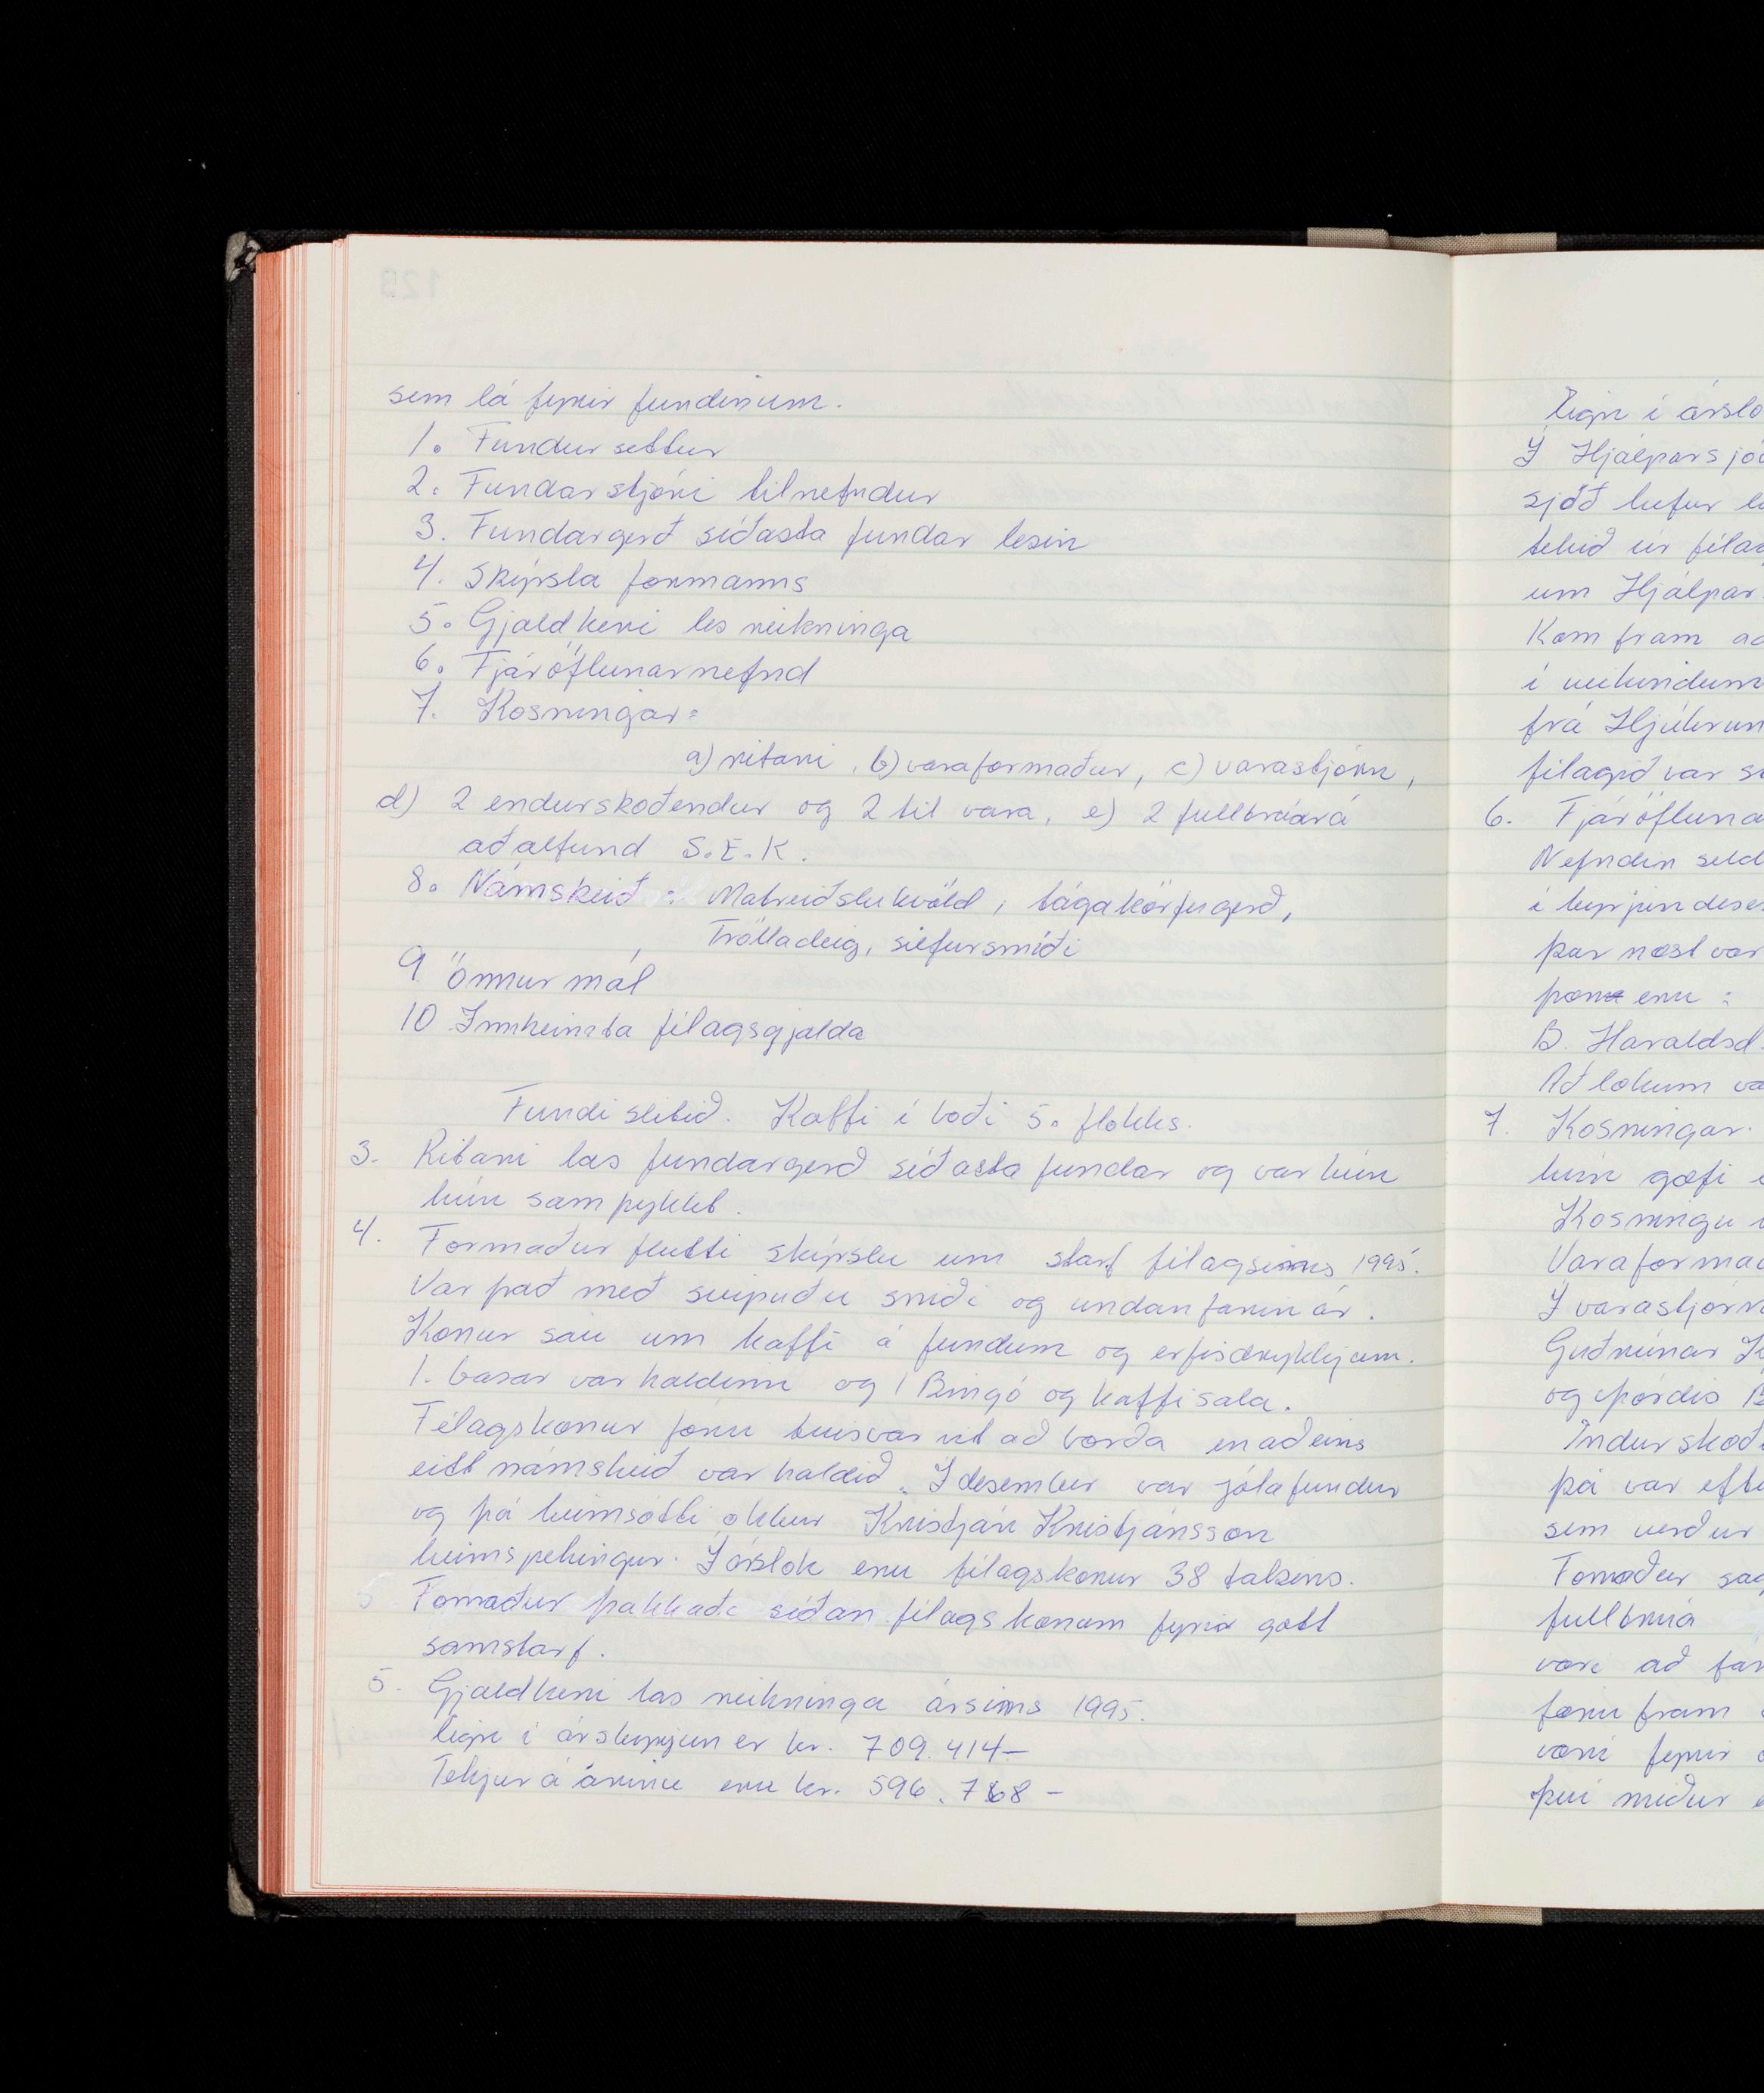 sem lá fyrir fundinum.
1. Fundur settur
2. Fundarstjóri tilnefndur
3. Fundargerð síðasta fundar lesin
4. Skýrsla formanns
5. Gjaldkeri les reikninga
6. Fjáröflunarnefnd
7. Kosningar:
a) ritari, b) varaformaður, c) varastjórn,
d) 2 endurskoðendur og 2 til vara, e) 2 fulltrúar á
aðalfund S.E.K.
8. Námskeið: Matreiðslukvöld, tágakörfugerð,
Trölladeig, silfursmíði
9 Önnur mál
10 Innheimta félagsgjalda
Fundi slitið. Kaffi í boði 5. flokks.
3. Ritari las fundargerð síðasta fundar og var hún
hún samþykkt.
4. Formaður flutti skýrslu um starf félagsins 1995.
Var það með svipuðu sniði og undanfarin ár.
Konur sáu um kaffi á fundum og erfisdrykkjum.
1. basar var haldinn og 1 Bingó og kaffisala.
Félagskonur fóru tvisvar út að borða en aðeins
eitt námskeið var haldið. Í desember var jólafundur
og þá heimsótti okkur Kristján Kristjánsson
heimspekingur. Í árslok eru félagskonur 38 talsins.
Fomaður þakkaði síðan félagskonum fyrir gott
samstarf.
5. Gjaldkeri las reikninga ársins 1995.
Eign í ársbyrjun er kr. 709.414-
Tekjur á árinu eru kr. 596.768-
Eign í árslo
Í Hjálparsjó
sjóð hefur
tekið úr félag
um Hjálpar
Kom fram að
í veikindum
frá Hjúkrun
félagið var
6. Fjáröfluna
Nefndin seld
í byrjun dese
þar næst var
þær eru:
B. Haraldsd.
Að lokum va
7. Kosningar.
hún gæfi
Kosningu
Varaformað
Í varastjórn
Guðrúnar
og Þórdís
Endurskoð
þá var eft
sem verður
Fomaður sag
fulltrúa
væri að far
færu fram
væri fyrir
því miður